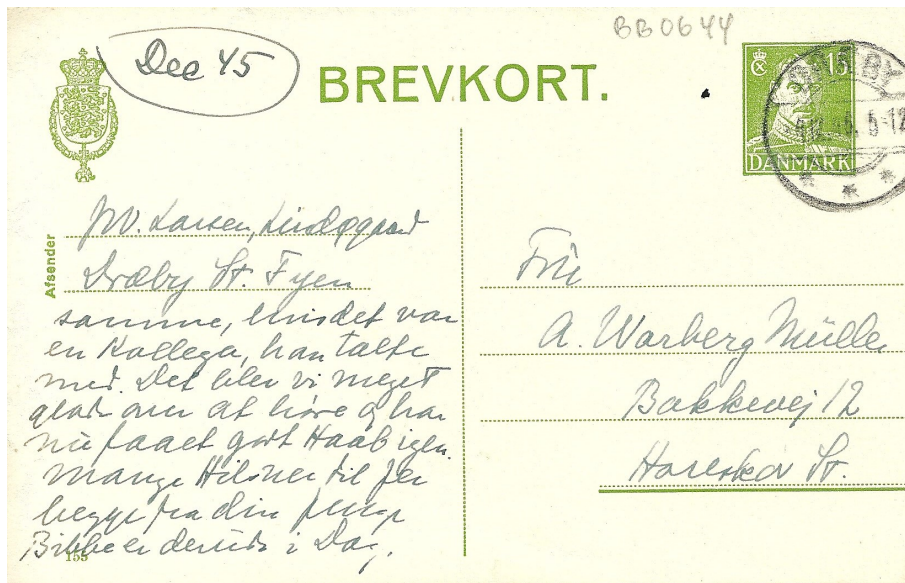 BB0644
Dec 45
BREVKORT.
15
DANMARK
Afsender
JW. Larsen, Lindøgaard
Dræby St. Fyen
samme, hvis det var
en Kollega, han talte
med. Det blev vi meget
glade over at høre og har
nu faaet godt Haab igen.
Mange Hilsner til Jer
begge fra din
Bibbe er derude i Dag.
155
Fru
A. Warberg Müller
Bakkevej 12
Hareskov St.